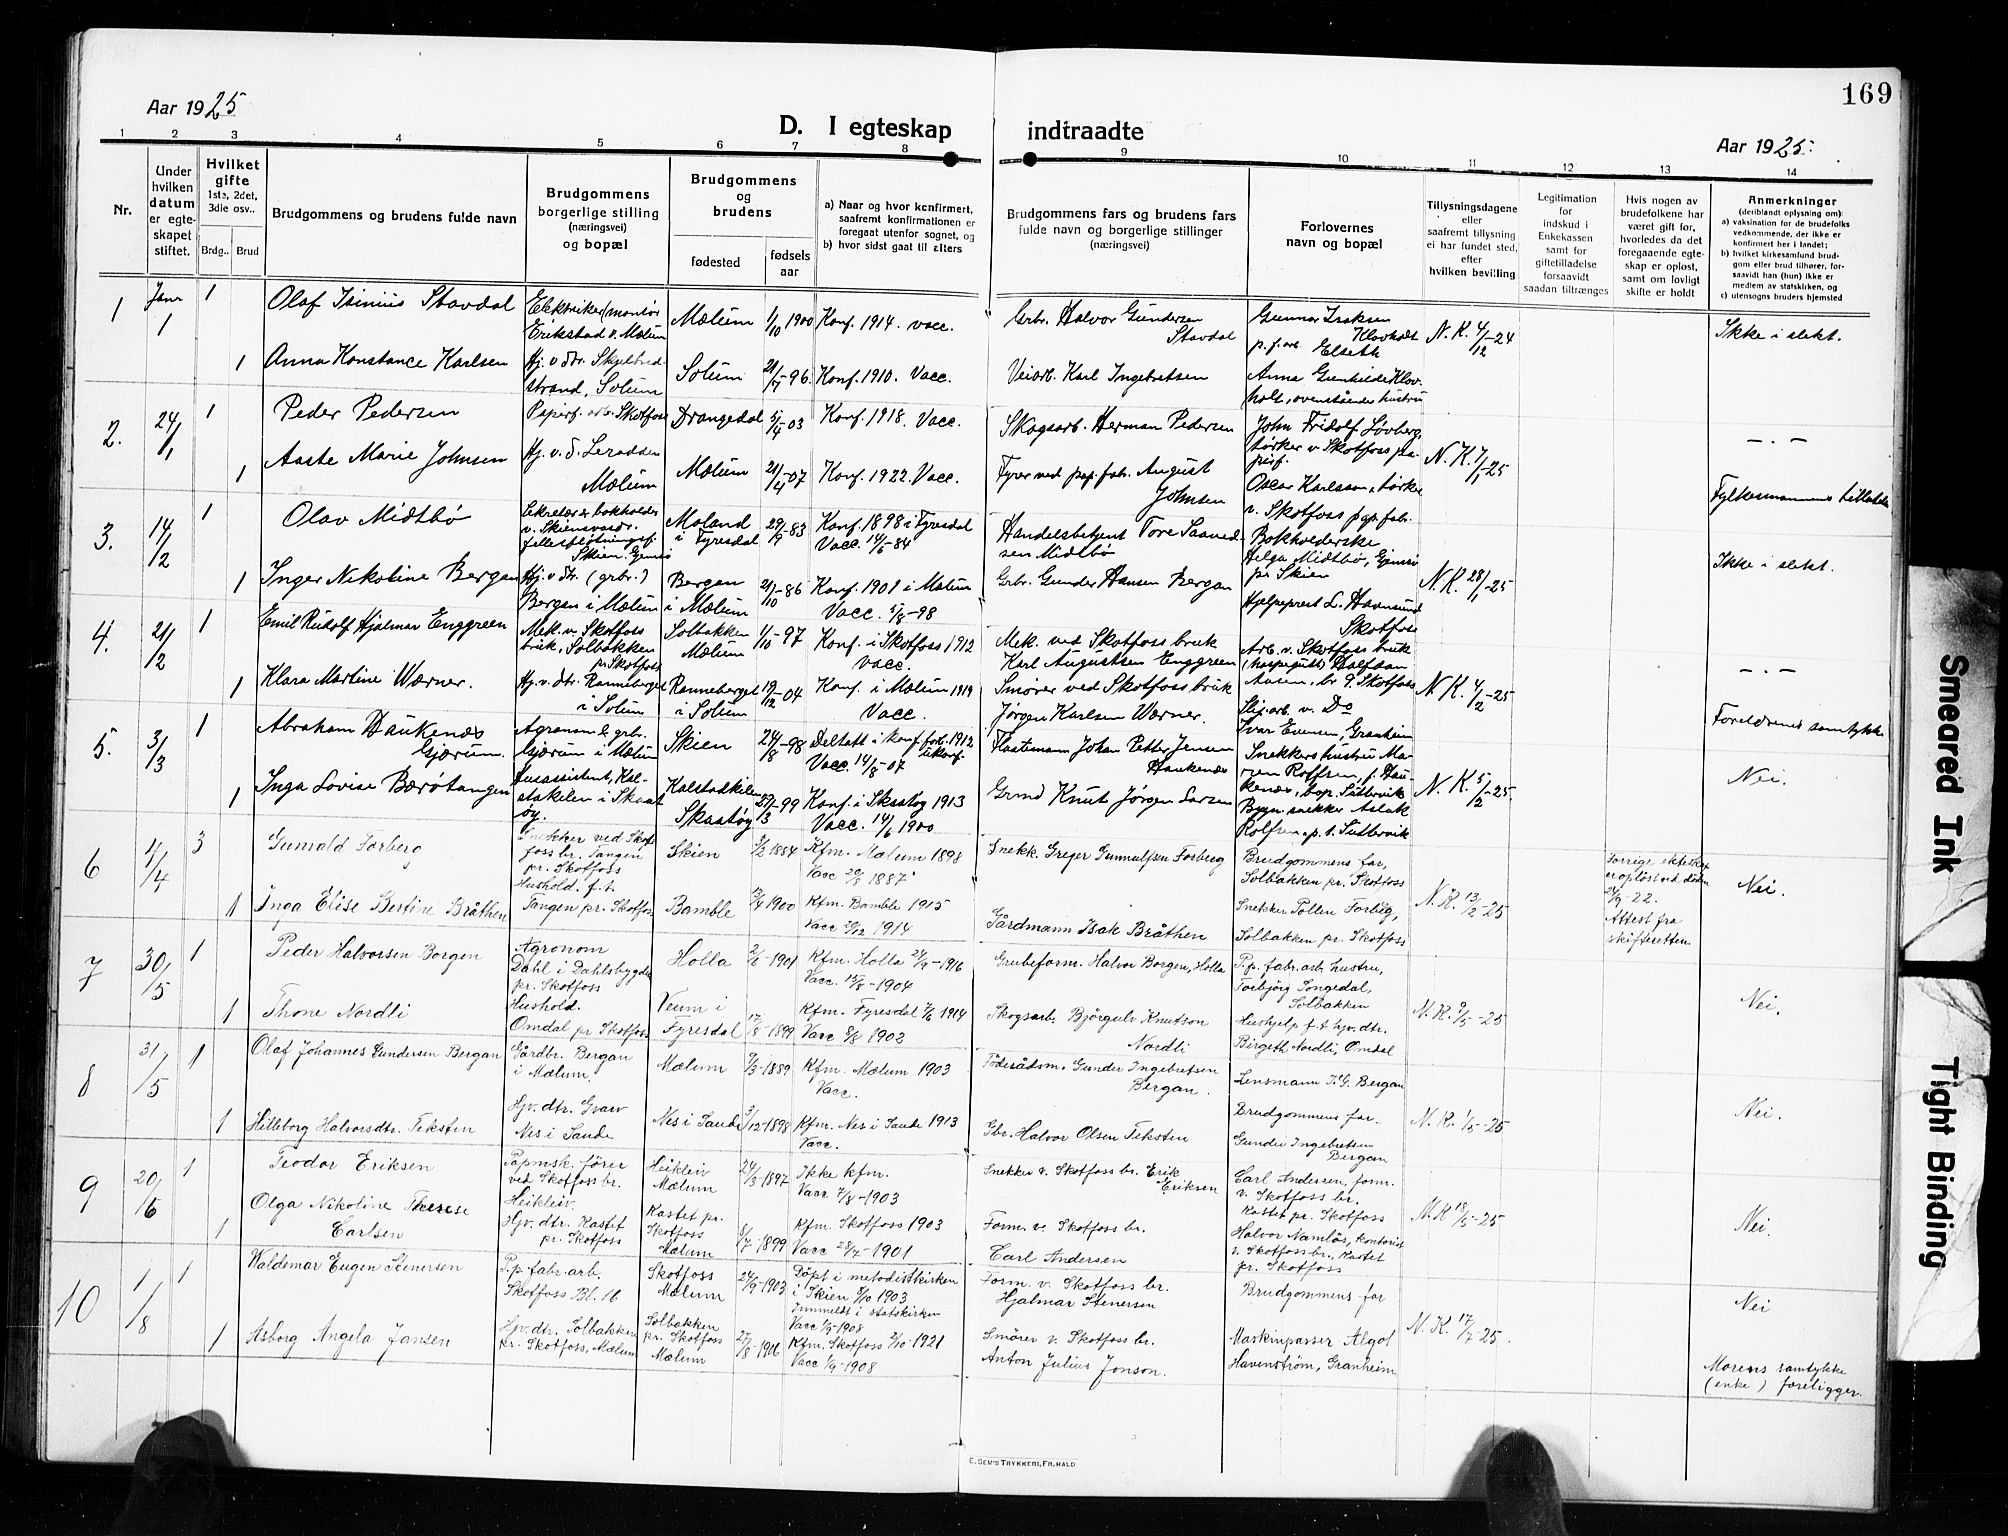 169
Aar 1925
D. I egteskap indtraadte
Aar 1925
1 2 3 4 5 6 7 8 9 10 11 12 13 14
Nr.
Under hvilken datum er egteskapet stiftet.
Hvilket gifte 1ste, 2det, 3die osv..
Brdg.. Brud
Brudgommens og brudens fulde navn
Brudgommens borgerlige stilling (næringsvei) og bopæl
Brudgommens og brudens
fødested
fødsels aar
a) Naar og hvor konfirmert, saafremt konfirmationen er foregaat utenfor sognet, og
b) hvor sidst gaat til alters
Brudgommens fars og brudens fars fulde navn og borgerlige stillinger (næringsvei)
Forlovernes navn og bopæl
Tillysningsdagene eller saafremt tillysning ei har fundet sted, efter hvilken bevilling
Legitimation for indskud i Enkekassen samt for giftetilladelse forsaavidt saadan tiltrænges
Hvis nogen av brudefolkene har været gift før, hvorledes da det foregaaende egteskap er opløst, samt om lovligt skifte er holdt
Anmerkninger (deriblandt oplysning om):
a) vaksination for de brudefolks vedkommende, der ikke er konfirmert her i landet;
b) hvilket kirkesamfund brudgom eller brud tilhører, forsaavidt han (hun) ikke er medlem av statskirken, og
c) utensogns bruders hjemsted
1 Janr 1 1 Olaf Isinius Stavdal Elektriker (montør Erikstad v. Mælum Mælum 1/10 1900 Konf. 1914. vacc. Grbr. Halvor Gundersen Stavdal Gunnar Isaksen Klovholt p.f.arb. Elseth N. K. 4/12-24 Ikke i slekt.
1 Anna Konstance Karlsen Hj. v. dtr. Skjelbredstrand, Solum Solum -96. Konf. 1910. Vacc. Veiarb. Karl Ingebretsen Anna Gunhilde Klovholt, ovenståendes hustru
2. 24/1 1 Peder Pedersen Papirf. arb. Skotfoss Drangedal 5/4-03 Konf. 1918. Vacc. Skogsarb. Herman Pedersen John Fridolf Løvberg, tørker v. Skotfoss papirf. N. K. 7/1-25 -.-
1 Aaste Marie Johnsen Hj. v. d. Leradden Mælum Mælum 21/4-07 Konf. 1922. Vacc. Fyrer ved pap.fabr. August Johnsen Oscar Karlsson, tørker v. Skotfoss pap.fabr. Fylkesmannens tilladelse
3. 14/2 1 Olav Midtbø Sekretær & bokholder v. Skiensvasdr. fellesfløtningsf. Skien. Gjemsø Moland i Fyresdal 29/9-83 Konf. 1898 i Fyresdal Vacc. 14/6-84 Handelsbetjent Tore Saavedsen Midtbø Bokholderske Helga Midtbø, Gjemsø pr Skien Ikke i slekt.
1 Inger Nikoline Bergan Hj. v. dtr. (grbr.) Bergan i Mælum Bergan i Mælum 21/10-86 Konf. 1901 i Mælum Vacc. 5/8-98 Grbr. Gunder Hansen Bergan Hjelpeprest L. Havnsund Skotfoss N. K. 28/1-25
4. 21/2 1 Emil Rudolf Hjalmar Enggreen Mek. v. Skotfoss bruk, Solbakken pr. Skotfoss Solbakken Mælum 1/10-97 Konf. i Skotfoss 1912 vacc. Mek. ved Skotfoss bruk Karl Augustsen Enggreen Arb. v. Skotfoss bruk Halfdan br. p. Skotfoss -.-
1 Klara Martine Wærner. Hj. v. dtr. Ranneberget i Solum Ranneberget i Solum 19/12-04 Konf. i Mælum 1919 Vacc. Smører ved Skotfoss bruk Jørgen Karlsen Wærner. Slip.arb. v. Do Ivar Evensen, Granheim N. K. 4/2-25 Foreldrenes samtykke
5. 3/3 1 Abraham Haukenæs Gjærum. Agronom & grbr. Gjærum i Mælum Skien 24/8-98 Deltatt i konf.forb. 1912 Vacc. 14/8-07 Johan Petter Jensen Haukenæs Snekkers hustru Maren Rolfsen, f. Haukenæs, bop. Nei.
1 Inga Lovise Bærøtangen Husassistent, Kalstakilen i Skaatøy. Kalstadkilen Skaatøy -99 Konf. i Skaatøy 1913 Vacc. 14/6 1900 Grmd Knut Jørgen Larsen Bygn. snekker Aslak Rolfsen, p. t. N. K. 5/2-25.
6 4/4 3 Gunvald Forberg Snekker ved Skotfoss br. Tangen pr. Skotfoss Skien 3/2 1884 Kfm. Mælum 1898 Vacc 20/8 1887 Snekk. Greger Gunnulfsen Forberg Brudgommens far, Solbakken pr. Skotfoss Forrige ekteskap er opløst ved døden 24/9-22. Attest fra skifteretten. Nei.
1 Inga Elise Bertine Bråthen Hushold. f. t. Tangen pr. Skotfoss Bamble 1900 Kfm. Bamble 1915 Vacc 1914 Gårdmann Isak Bråthen Snekker Pollen Forberg, Solbakken pr. Skotfoss N. K. 13/2-25
7 30/5 1 Peder Halvorsen Borgen Agronom Dahl i Dahlsbygda pr. Skotfoss Holla 2/6-1901 Kfm. Holla 24/9-1916 Vacc. 15/8-1904 Grubeform. Halvor Borgen, Holla P.p. fabr. arb. hustru, Torbjörg Songedal, Solbakken
1 Thone Nordli Hushold. Omdal pr Skotfoss Veum i Fyresdal 17/8-1899 Kfm. Fyresdal 7/6 1914 Vacc 8/8 1902 Skogsarb. Björgulv Knutson Nordli Hushjelp f. t hjv. dtr. Birgeth Nordli, Omdal N. K. 9/5-25 Nei.
8 31/5 1 Olaf Johannes Gundersen Bergan Gårdbr. Bergan i Mælum. Mælum 9/3-1889 Kfm. Mælum 1903 Vacc. Föderådsm. Gunder Ingebretsen Bergan. Lensmann I. G. Bergan
1 Hilleborg Halvorsdtr. Teksten Hjv. dtr. Gvarv Nes i Sande Nes i Sande 3/12-1898 Kfm. Nes i Sande 1913 Vacc. Gbr. Halvor Olsen Teksten Brudgommens far Gunder Ingebretsen Bergan N. K. 1/5-25 Nei.
9 20/6 1 Teodor Eriksen Papmsk. fører ved Skotfoss br. Heikleiv Heikleiv Mælum 24/3-1897 Ikke kfm. Vacc 7/8-1903 Snekker v. Skotfoss br. Erik Eriksen Carl Andersen, form. v. Skotfoss br. Kastet pr. Skotfoss
1 Olga Nikoline Therese Carlsen Hjv. dtr. Kastet pr. Skotfoss Kastet pr. Skotfoss Mælum 8/7-1899 Kfm. Skotfoss 1903 Vacc 28/7-1901 Form. v. Skotfoss br. Carl Andersen Halvor Namløs, kontorist v. Skotfoss br., Kastet pr. Skotfoss N. K 18/5-25 Nei.
10 1/8 1 Waldemar Eugen Stenersen P.p. fabr. arb. Skotfoss Bl. 16 Skotfoss Mælum 24/9-1903 Döpt i metodistkirken i Skien 5/10 1903 Innmeldt i statskirken Vacc 1/9-1908 Form. v. Skotfoss br. Hjalmar Stenersen Brudgommens far Nei
1 Asborg Angela Jansen Hjv. dtr. Solbakken pr. Skotfoss, Mælum Solbakken pr. Skotfoss Mælum 27/8-1906 Kfm. Skotfoss 2/10-1921 Vacc 1/9-1908 Smører v. Skotfoss br. Anton Julius Jonson. Maskinpasser Algot Havenström, Granheim N. K. 17/7-25. Morens samtykke (enke) foreligger.
E. SEM'S TRYKKERI, FR.HALD
Smeared Ink
Tight Binding